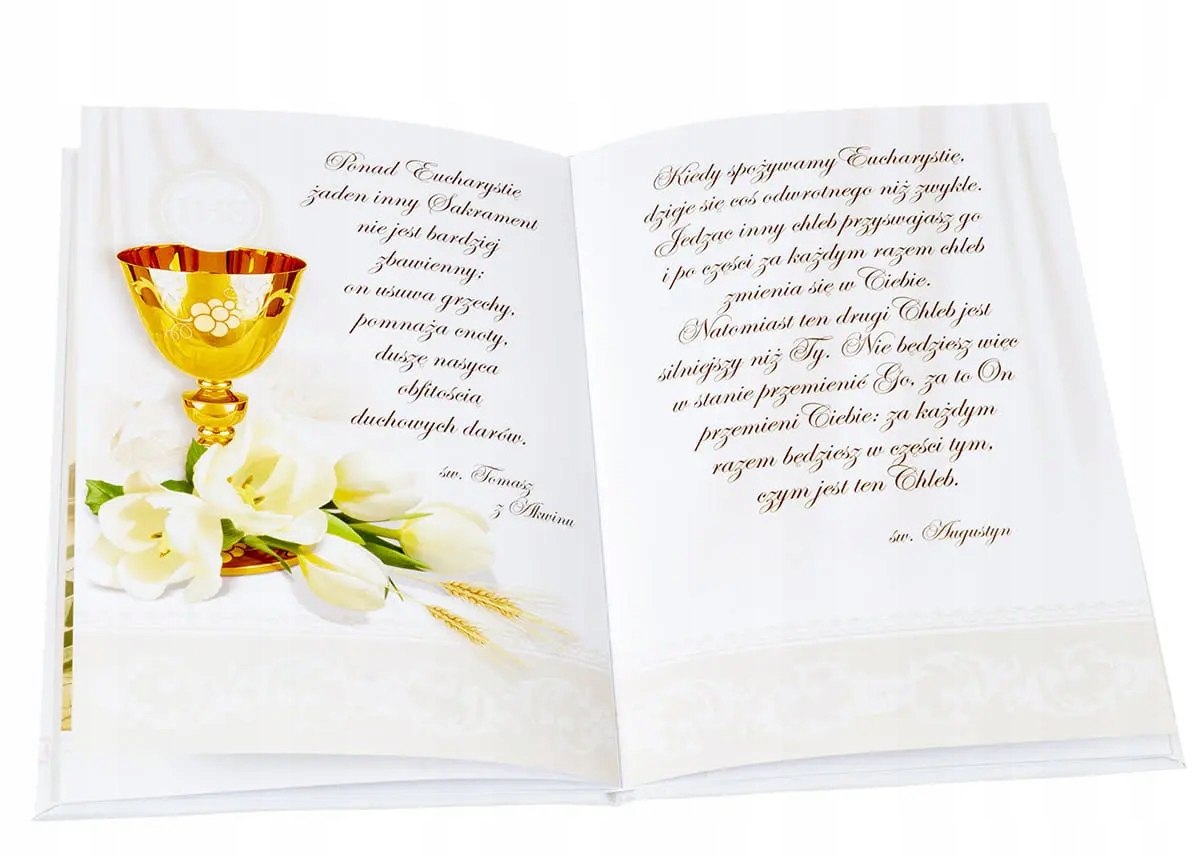 Ponad Eucharystię
żaden inny Sakrament
nie jest bardziej
zbawienny;
on usuwa grzechy,
pomnaża cnoty,
duszę nasyca
obfitością
duchowych darów.
św. Tomasz
z Akwinu
Kiedy spożywamy Eucharystię,
dzieje się coś odwrotnego niż zwykle.
Jedząc inny chleb przyswajasz go
i po części za każdym razem chleb
zmienia się w Ciebie.
Natomiast ten drugi Chleb jest
silniejszy niż Ty. Nie będziesz więc
w stanie przemienić Go, za to On
przemieni Ciebie: za każdym
razem będziesz w części tym,
czym jest ten Chleb.
św. Augustyn